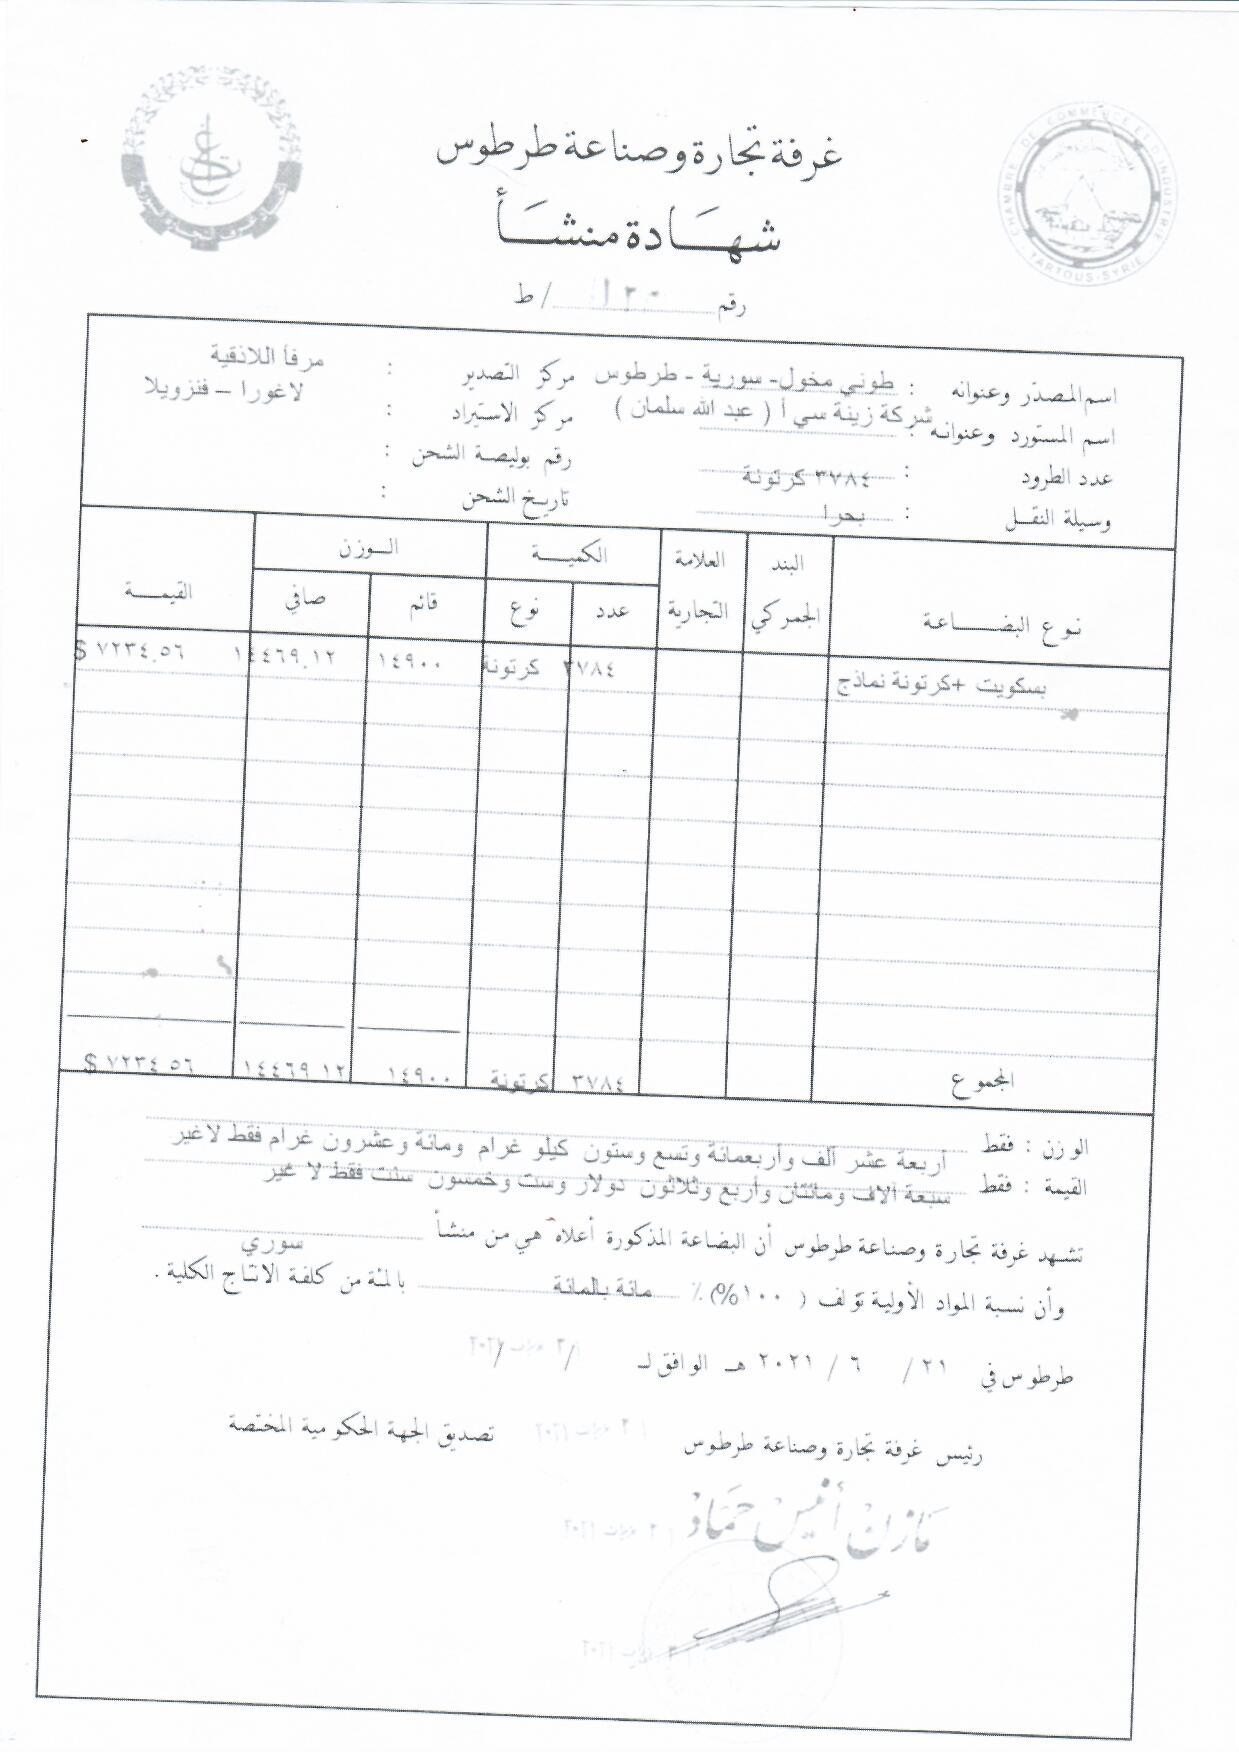 غرفة تجارة وصناعة طرطوس
CHAMBRE DE COMMERCE ET D'INDUSTRIE
TARTOUS-SYRIE
شهادة منشأ
رقم / ط
اسم المصدر وعنوانه : طوني مخول- سورية - طرطوس مركز التصدير : مرفأ اللاذقية
اسم المستورد وعنوانه : شركة زينة سي أ ( عبد الله سلمان ) مركز الاستيراد : لاغورا – فنزويلا
عدد الطرود : ٣٧٨٤ كرتونة رقم بوليصة الشحن :
وسيلة النقل : بحرا تاريخ الشحن :
نوع البضاعة البند الجمركي العلامة التجارية الكمية الوزن القيمة
عدد نوع قائم صافي
بسكويت +كرتونة نماذج ٣٧٨٤ كرتونة ١٤٩٠٠ ١٤٤٦٩.١٢ ٧٢٣٤.٥٦ $
المجموع ٣٧٨٤ كرتونة ١٤٩٠٠ ١٤٤٦٩.١٢ ٧٢٣٤.٥٦ $
الوزن : فقط أربعة عشر ألف وأربعمائة وتسع وستون كيلو غرام ومائة وعشرون غرام فقط لاغير
القيمة : فقط سبعة آلاف ومائتان وأربع وثلاثون دولار وست وخمسون سنت فقط لا غير
تشهد غرفة تجارة وصناعة طرطوس أن البضاعة المذكورة أعلاه هي من منشأ سوري
وأن نسبة المواد الأولية تؤلف ( ١٠٠%) ٪ مائة بالمائة بالمئة من كلفة الانتاج الكلية .
طرطوس في ٢١ / ٦ / ٢٠٢١ هـ الوافق لـ / /
رئيس غرفة تجارة وصناعة طرطوس تصديق الجهة الحكومية المختصة
مازن أنيس حماد